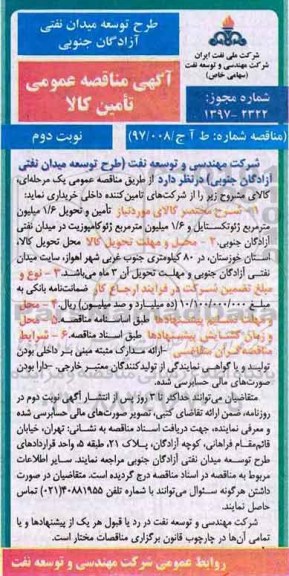 طرح توسعه میدان نفتی
آزادگان جنوبی
شرکت ملی نفت ایران
شرکت مهندسی و توسعه نفت
(سهامی خاص)
آگهی مناقصه عمومی
تأمین کالا
شماره مجوز:
۱۳۹۷- ۲۳۲۲
(مناقصه شماره: ط آ ج/۹۷/۰۰۸)
نوبت دوم
شرکت مهندسی و توسعه نفت (طرح توسعه میدان نفتی
آزادگان جنوبی) درنظر دارد از طریق مناقصه عمومی یک مرحله‌ای،
کالای مشروح زیر را از شرکت‌های تامین‌کننده داخلی خریداری نماید:
۱- شرح مختصر کالای موردنیاز تأمین و تحویل ۱/۶ میلیون
مترمربع ژئوتکستایل و ۱/۶ میلیون مترمربع ژئوکامپوزیت در میدان نفتی
آزادگان جنوبی. ۲ - محل و مهلت تحویل کالا محل تحویل کالا،
استان خوزستان، در ۸۰ کیلومتری جنوب غربی شهر اهواز، سایت میدان
نفتی آزادگان جنوبی و مهلت تحویل آن ۳ ماه می‌باشد. ۳ - نوع و
مبلغ تضمین شرکت در فرایند ارجاع کار ضمانت‌نامه بانکی به
مبلغ ۱۰/۱۰۰/۰۰۰/۰۰۰ (ده میلیارد و صد میلیون) ریال. ۴ - محل
و مهلت تسلیم پیشنهادها طبق اسناد مناقصه. ۵ - محل
و زمان گشایش پیشنهادها طبق اسناد مناقصه. ۶ - شرایط
مناقصه گران متقاضی -ارائه مدارک مثبته مبنی بر داخلی بودن
تولید و یا گواهی نمایندگی از تولیدکنندگان معتبر خارجی -دارا بودن
صورت‌های مالی حسابرسی شده.
متقاضیان می‌توانند حداکثر تا ۳ روز پس از انتشار آگهی نوبت دوم در
روزنامه، ضمن ارائه تقاضای کتبی، تصویر صورت‌های مالی حسابرسی شده
و معرفی نماینده، جهت دریافت اسناد مناقصه به نشانی: تهران، خیابان
قائم‌مقام فراهانی، کوچه آزادگان، پلاک ۲۱، طبقه ۵، واحد قراردادهای
طرح توسعه میدان نفتی آزادگان جنوبی مراجعه نمایند. سایر اطلاعات
مربوط به مناقصه در اسناد مناقصه درج گردیده است. متقاضیان در صورت
داشتن هرگونه سئوال می‌توانند با شماره تلفن ۴۰۸۸۱۹۵۵(۰۲۱) تماس
حاصل نمایند.
شرکت مهندسی و توسعه نفت در رد یا قبول هر یک از پیشنهادها و یا
تمامی آن‌ها در چارچوب قانون برگزاری مناقصات مختار است.
روابط عمومی شرکت مهندسی و توسعه نفت